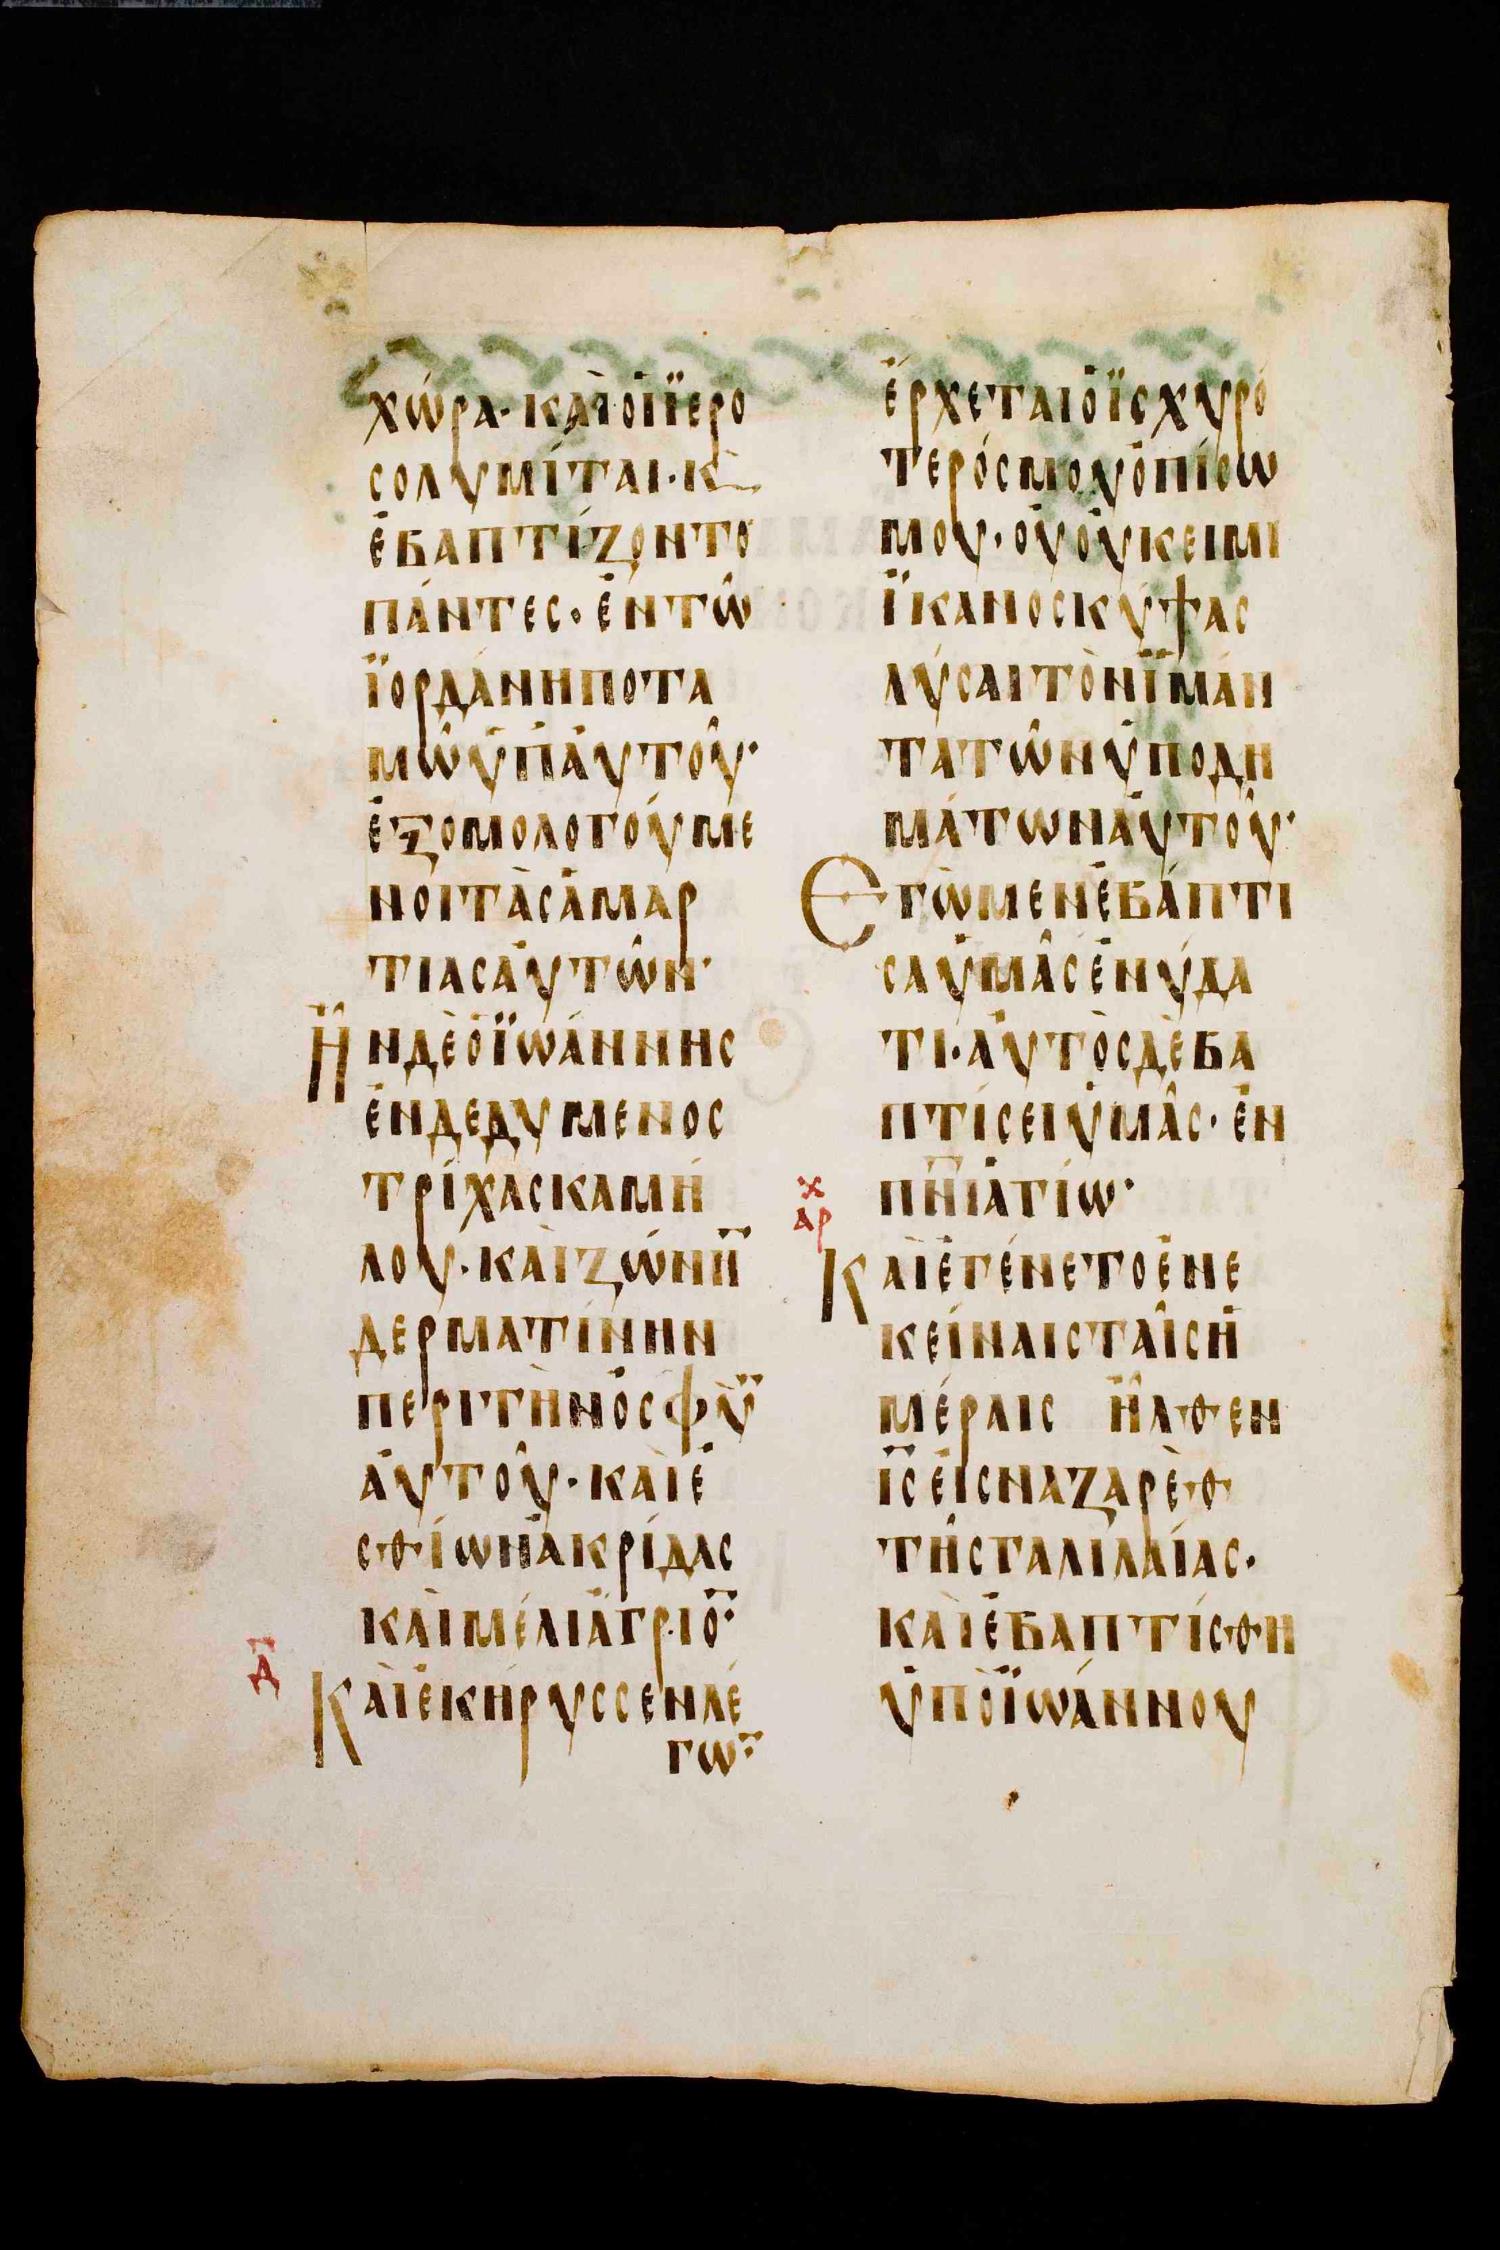 χώρα· καὶ οἱ ϊερο
σολυμίται· κ
ἐβαπτίζοντο
πάντες· ἐν τῶ
ϊορδάνη ποτα
μῶ ὑπ αὐτοῦ·
ἐξομολογούμε
νοι τὰς ἁμαρ
τιας αὐτῶν·
Ἦν δὲ ὁ ϊωάννης
ἐνδεδυμενος
τρίχας καμή
λου· καὶ ζώνη̅
δερματίνην
περι τὴν ὀσφὺ̅
αὐτοῦ· καὶ ἐ
σθίων ἀκρίδας
καὶ μέλι ἄγριο̅·
Δ̅
Καὶ ἐκήρυσσεν λέ
γω̅·
ἔρχεται ὁ ϊσχυρό
τερός μου ὀπίσω
μου· οὗ οὐκ ειμι
ϊκανος κύψας
λύσαι τὸν ϊμάν
τα τῶν ὑποδη
μάτων αὐτοῦ·
Ἐγὼ μεν ἐβάπτι
σα ὑμᾶς ἐν ὕδα
τι· αὐτὸς δὲ βα
πτίσει ὑμᾶς· ἐν
π̅ν̅ι ἁγίω·
χ
αρ
Καὶ ἐγένετο ἐν ἐ
κείναις ταῖς ἡ
μέραις ἦλθεν
ι̅ς̅ εἰς ναζαρὲθ
τῆς γαλιλαίας·
καὶ ἐβαπτίσθη
ὑπὸ ϊωάννου